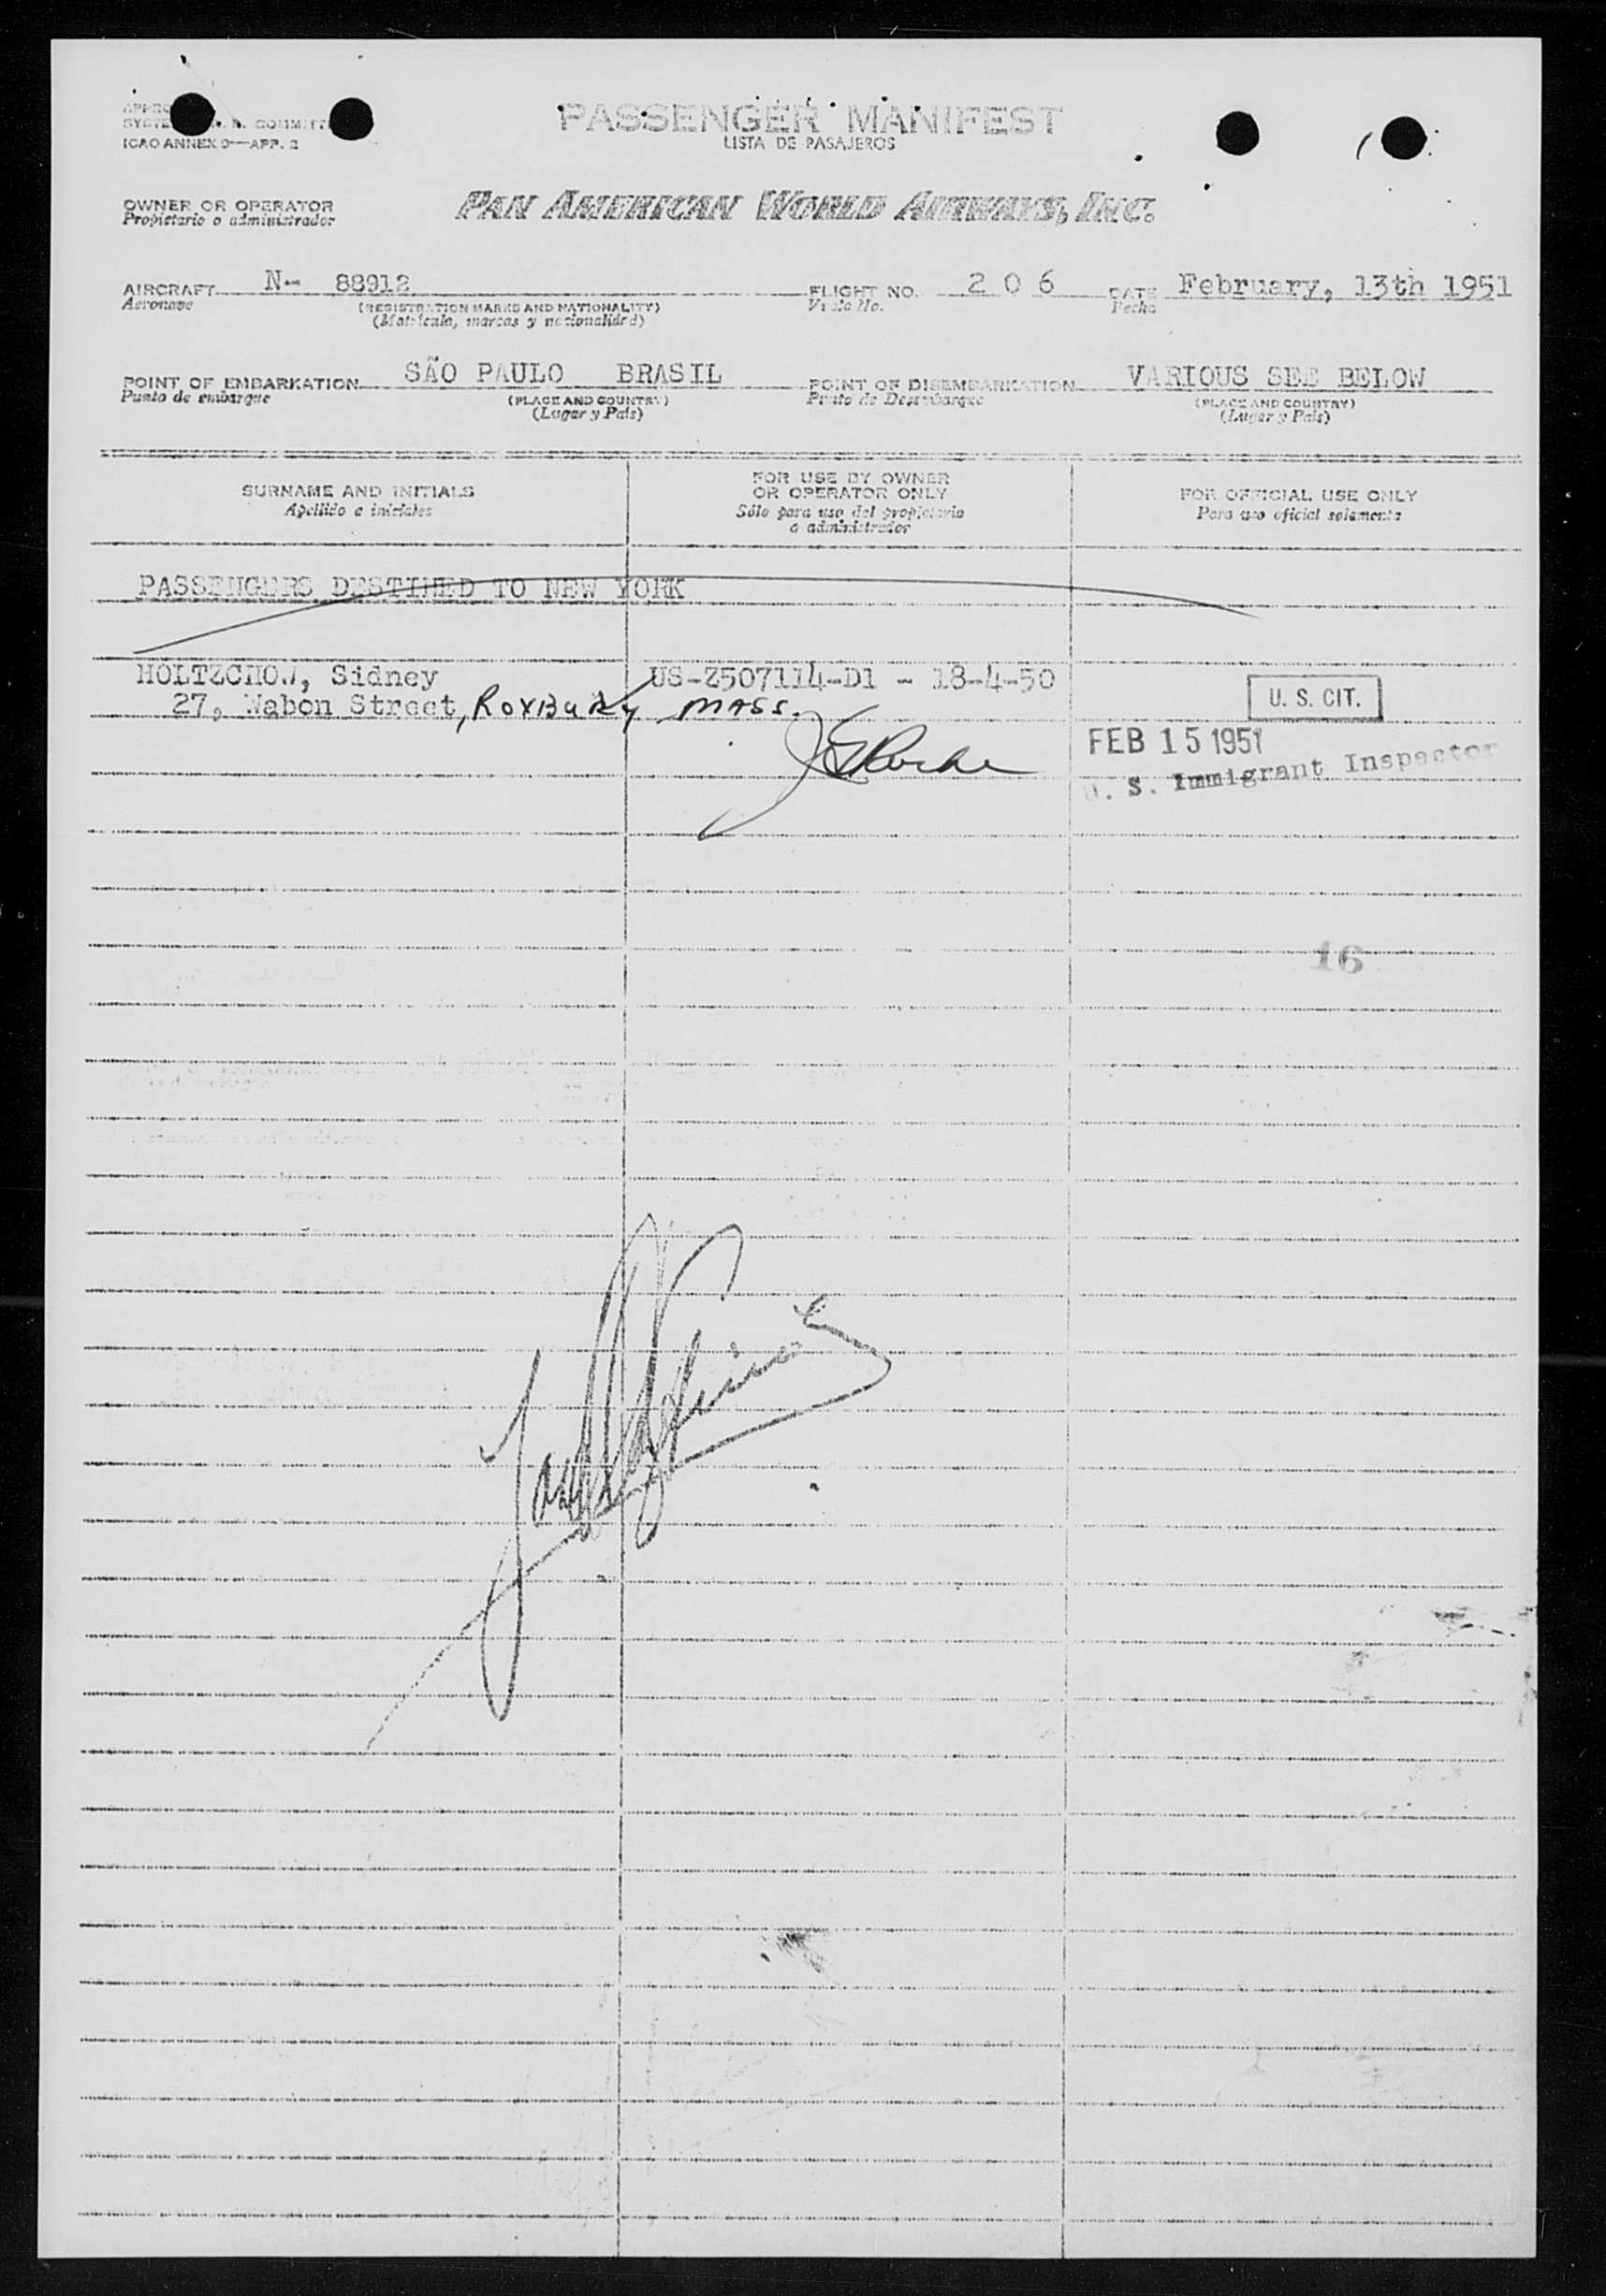 PASSENGER MANIFEST
LISTA DE PASAJEROS
ICAO ANNEX 9—APP. 2
OWNER OR OPERATOR
Propietario o administrador
PAN AMERICAN WORLD AIRWAYS, INC.
AIRCRAFT N-- 88912 FLIGHT NO. 2 0 6 DATE February, 13th 1951
Aeronave (REGISTRATION MARKS AND NATIONALITY) Vuelo No. Fecha
(Matrícula, marcas y nacionalidad)
POINT OF EMBARKATION SÃO PAULO BRASIL POINT OF DISEMBARKATION VARIOUS SEE BELOW
Punto de embarque (PLACE AND COUNTRY) Punto de Desembarque (PLACE AND COUNTRY)
(Lugar y País) (Lugar y País)
SURNAME AND INITIALS
Apellido e iniciales
FOR USE BY OWNER
OR OPERATOR ONLY
Sólo para uso del propietario
o administrador
FOR OFFICIAL USE ONLY
Para uso oficial solamente
PASSENGERS DESTINED TO NEW YORK
HOLTZCHOW, Sidney US-Z507114-D1 - 18-4-50
27, Wabon Street, Roxbury MASS. U. S. CIT.
FEB 15 1951
U. S. Immigrant Inspector
16